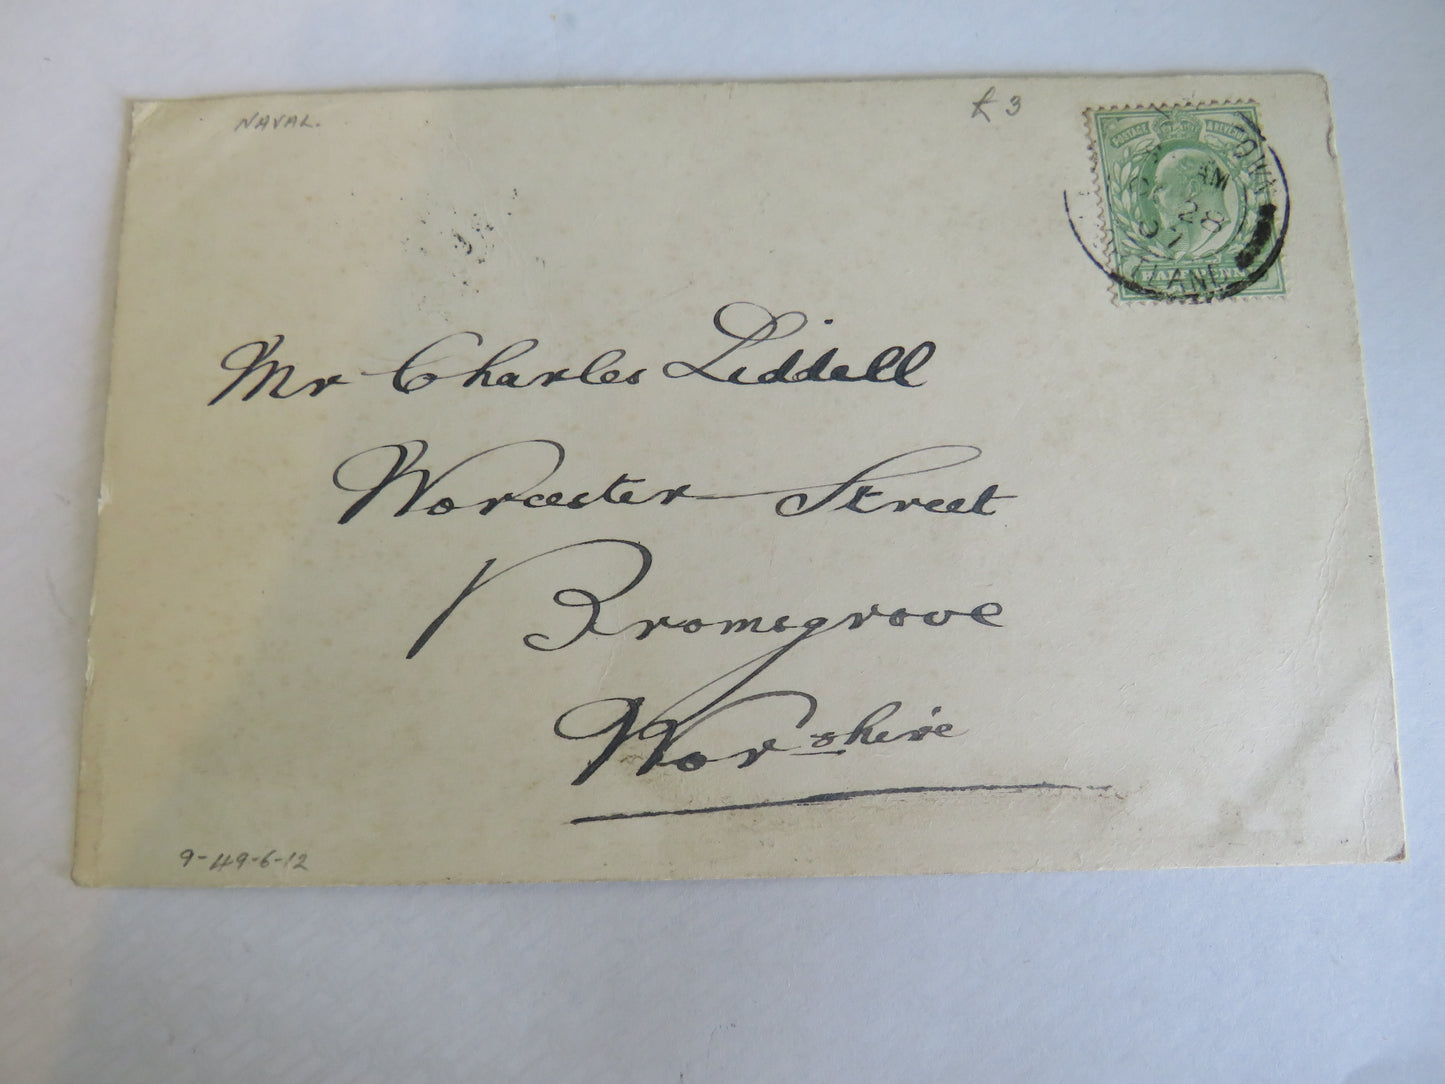 NAVAL.
£3
POSTAGE & REVENUE
TOWN
AM
28
07
Mr Charles Liddell
Worcester Street
Bromsgrove
Wor-shire
9-49-6-12